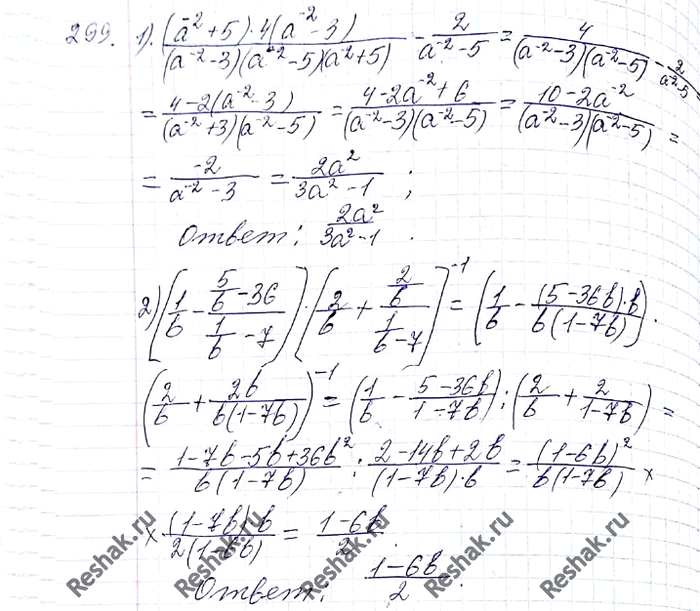 299. 1). (a⁻²+5)·4(a⁻²-3) / (a⁻²-3)(a⁻²-5)(a⁻²+5) - 2 / a⁻²-5 = 4 / (a⁻²-3)(a⁻²-5) - 2 / a⁻²-5
= 4-2(a⁻²-3) / (a⁻²+3)(a⁻²-5) = 4-2a⁻²+6 / (a⁻²-3)(a⁻²-5) = 10-2a⁻² / (a⁻²-3)(a⁻²-5) =
= -2 / a⁻²-3 = 2a² / 3a²-1 ;
Ответ: 2a² / 3a²-1 .
2) [1/b - (5/b - 36) / (1/b - 7)] · [2/b + (2/b) / (1/b - 7)]⁻¹ = (1/b - (5-36b)·b / b(1-7b)) ·
(2/b + 2b / b(1-7b))⁻¹ = (1/b - 5-36b / 1-7b) : (2/b + 2 / 1-7b) =
= 1-7b-5b+36b² / b(1-7b) : 2-14b+2b / (1-7b)·b = (1-6b)² / b(1-7b) ×
× (1-7b)·b / 2(1-6b) = 1-6b / 2 .
Ответ: 1-6b / 2 .
Reshak.ru Reshak.ru Reshak.ru Reshak.ru Reshak.ru Reshak.ru